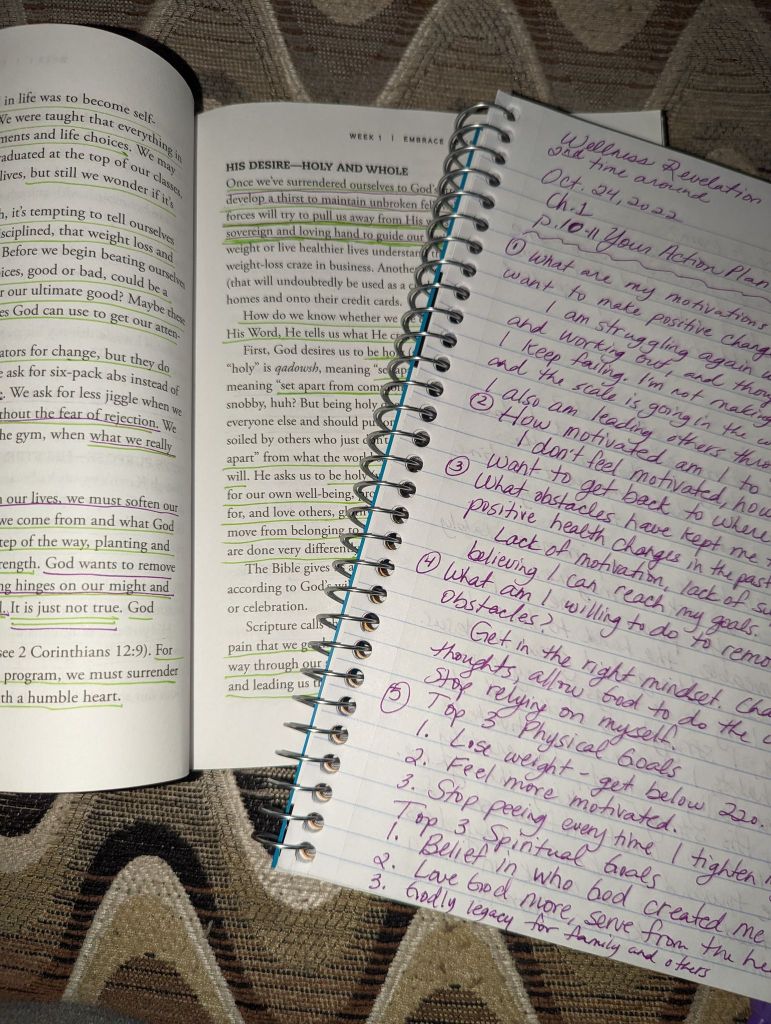 in life was to become self-
We were taught that everything in
ments and life choices. We may
raduated at the top of our classes
lives, but still we wonder if it's
h, it's tempting to tell ourselves
sciplined, that weight loss and
Before we begin beating ourselves
oices, good or bad, could be a
r our ultimate good? Maybe these
es God can use to get our atten-
ators for change, but they do
e ask for six-pack abs instead of
. We ask for less jiggle when we
thout the fear of rejection. We
he gym, when what we really
n our lives, we must soften our
we come from and what God
tep of the way, planting and
rength. God wants to remove
ng hinges on our might and
l. It is just not true. God
see 2 Corinthians 12:9). For
program, we must surrender
th a humble heart.
WEEK 1 | EMBRACE
HIS DESIRE—HOLY AND WHOLE
Once we've surrendered ourselves to God's
develop a thirst to maintain unbroken fel
forces will try to pull us away from His w
sovereign and loving hand to guide our
weight or live healthier lives understan
weight-loss craze in business. Anothe
(that will undoubtedly be used as a
homes and onto their credit cards.
How do we know whether we
His Word, He tells us what He
First, God desires us to be ho
"holy" is qadowsh, meaning
meaning "set apart from com
snobby, huh? But being holy
everyone else and should
soiled by others who just
apart" from what the
will. He asks us to be holy
for our own well-being,
for, and love others,
move from belonging to
are done very different
The Bible gives
according to God's
or celebration.
Scripture calls
pain that we
way through our
and leading us
Wellness Revelation
2nd time around
Oct. 24, 2022
Ch. 1
p. 10-11 Your Action Plan
① What are my motivations
want to make positive chang
I am struggling again w
and working out and thoug
I keep failing. I'm not making
and the scale is going in the w
I also am leading others thro
② How motivated am I to
I don't feel motivated, how
want to get back to where
③ What obstacles have kept me
positive health changes in the past
Lack of motivation, lack of su
believing I can reach my goals.
④ What am I willing to do to remo
obstacles?
Get in the right mindset. Cha
thoughts, allow God to do the c
Stop relying on myself.
⑤ Top 3 Physical Goals
1. Lose weight - get below 220.
2. Feel more motivated.
3. Stop peeing every time I tighten
Top 3 Spiritual Goals
1. Belief in who God created me
2. Love God more, serve from the he
3. Godly legacy for family and others